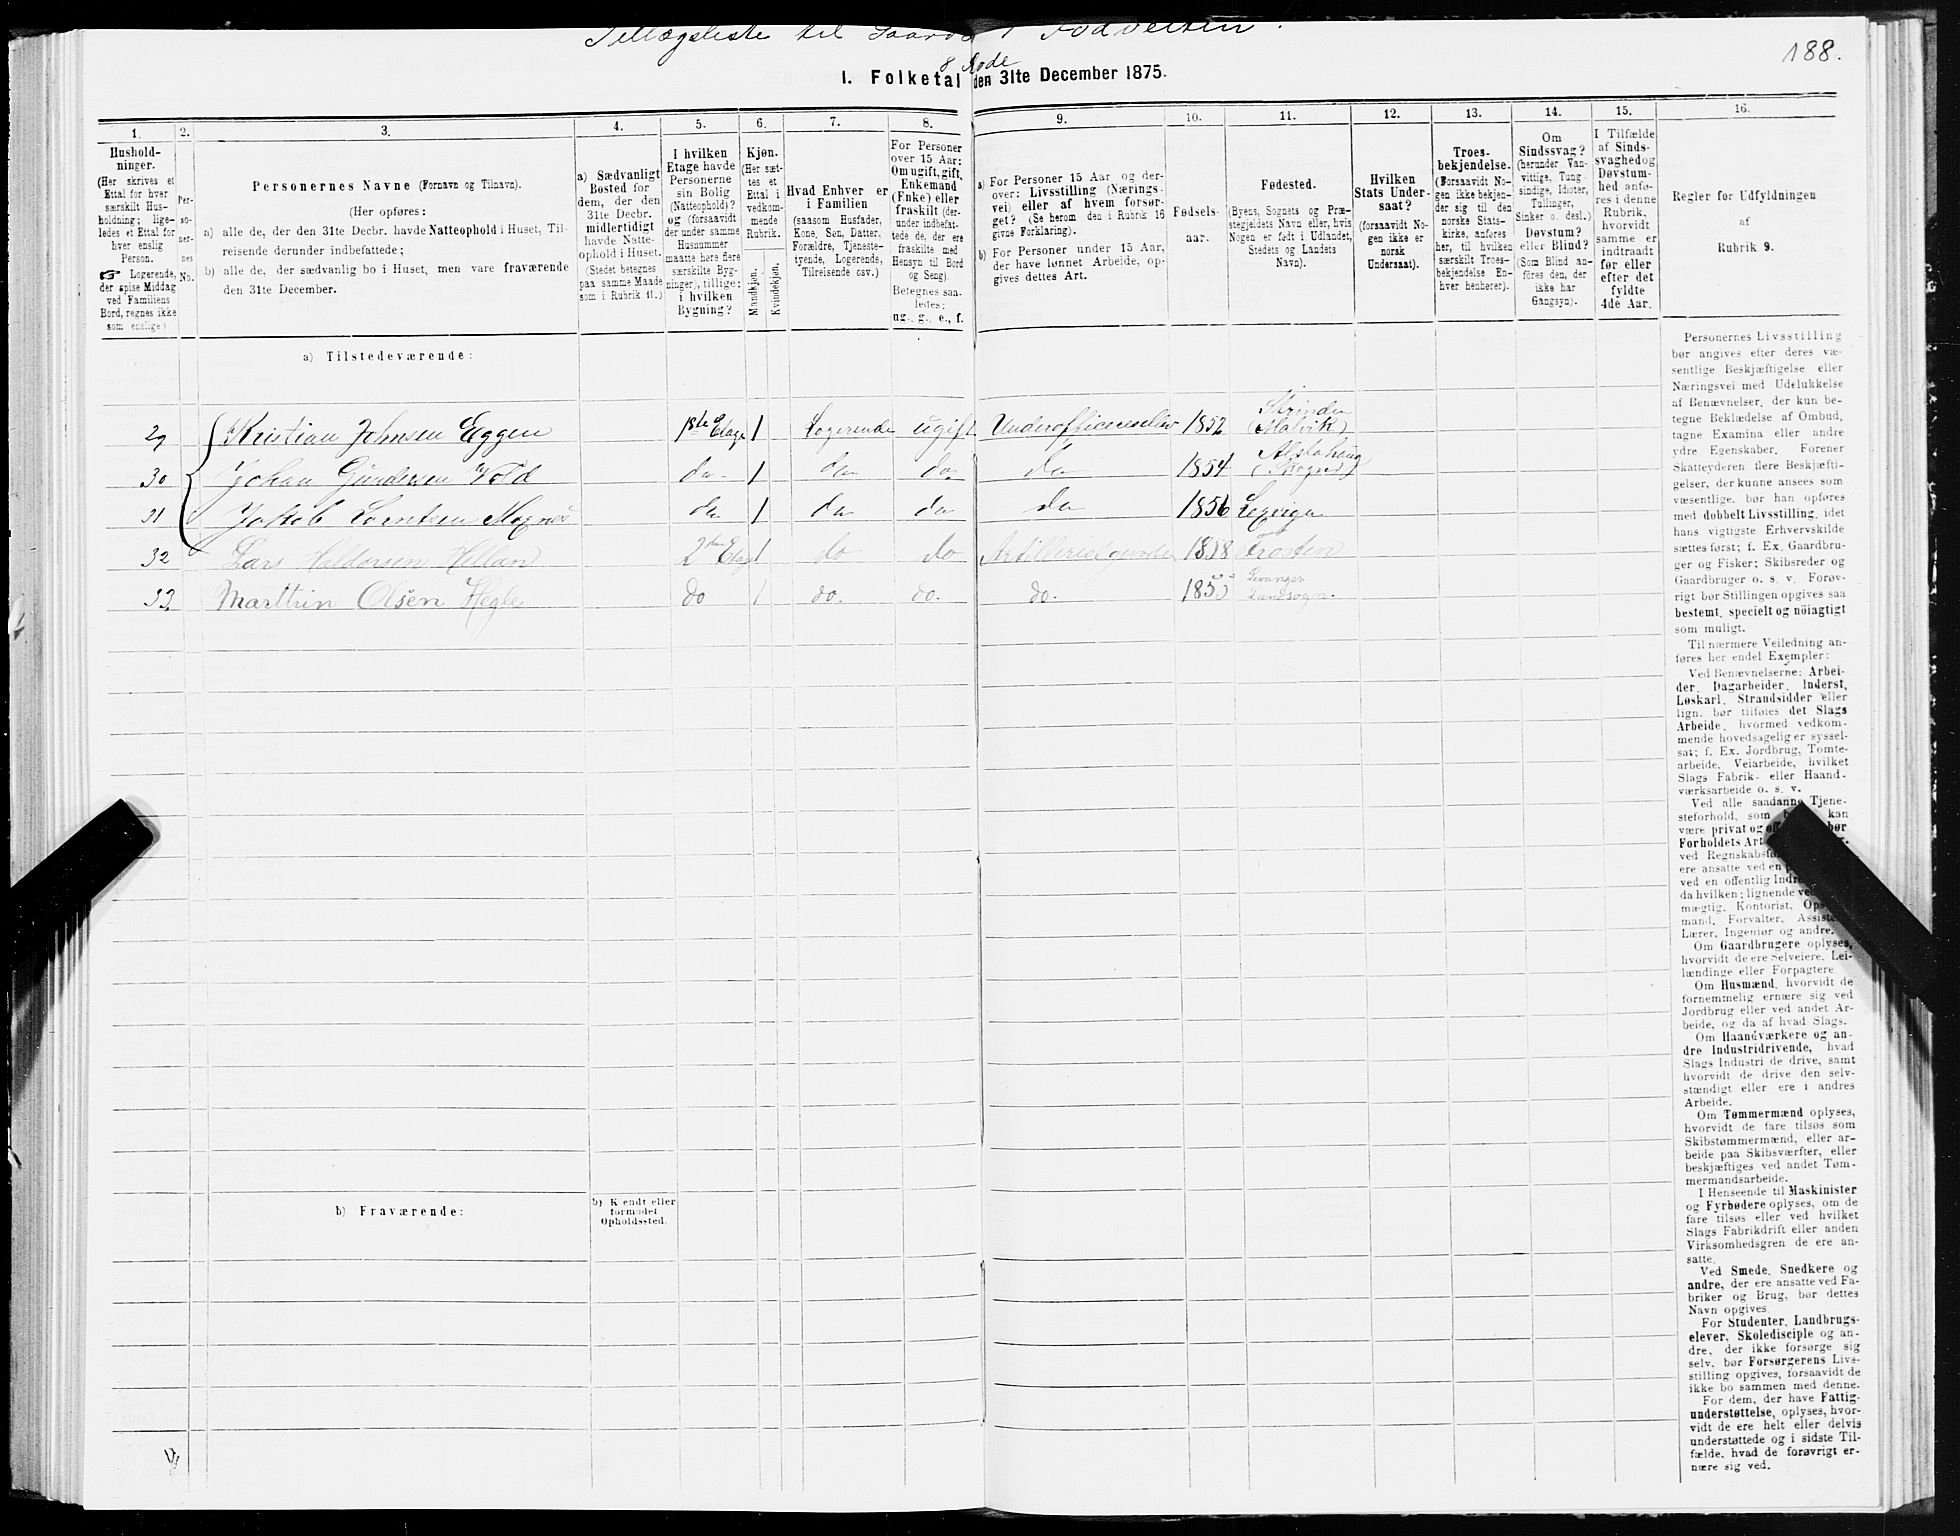 Tillægsliste til
188.
8 Rode
I. Folketal den 31te December 1875.
1. 2. 3. 4. 5. 6. 7. 8. 9. 10. 11. 12. 13. 14. 15. 16.
Husholdninger.
(Her skrives et
Ettal for hver
særskilt Husholdning; ligeledes et Ettal for
hver enslig
Person.
☞ Logerende,
der spise Middag
ved Familiens
Bord, regnes ikke
som enslige)
Personernes No.
Personernes Navne (Fornavn og Tilnavn).
(Her opføres:
a) alle de, der den 31te Decbr. havde Natteophold i Huset, Tilreisende derunder indbefattede;
b) alle de, der sædvanlig bo i Huset, men vare fraværende
den 31te December.
a) Sædvanligt
Bosted for
dem, der den
31te Decbr.
midlertidigt
havde Natteophold i Huset.
(Stedet betegnes
paa samme Maade
som i Rubrik 11.)
I hvilken
Etage havde
Personerne
sin Bolig
(Natteophold)?
og (forsaavidt
der under samme
Husnummer
maatte høre flere
særskilte Bygninger), tillige:
i hvilken
Bygning?
Kjøn.
(Her sættes et
Ettal i
vedkommende
Rubrik.
Mandkjøn.
Kvindekjøn.
Hvad Enhver er
i Familien
(saasom Husfader,
Kone, Søn, Datter,
Forældre, Tjenestetyende, Logerende,
Tilreisende osv.)
For Personer
over 15 Aar:
Om ugift, gift,
Enkemand
(Enke) eller
fraskilt (derunder indbefattede de, der ere
fraskilte med
Hensyn til Bord
og Seng).
Betegnes saaledes:
ug., g., e., f.
a) For Personer 15 Aar og derover: Livsstilling (Næringsvei) eller af hvem forsørget? (Se herom den i Rubrik 16
givne Forklaring).
b) For Personer under 15 Aar,
der have lønnet Arbeide, opgives dettes Art.
Fødselsaar.
Fødested.
(Byens, Sognets og Præstegjeldets Navn eller, hvis
Nogen er født i Udlandet,
Stedets og Landets
Navn).
Hvilken
Stats Undersaat?
(forsaavidt Nogen ikke er
norsk
Undersaat).
Troesbekjendelse.
(Forsaavidt Nogen ikke bekjender sig til den
norske Statskirke, anføres
her, til hvilken
særskilt Troesbekjendelse Enhver henhører).
Om
Sindssvag?
(herunder Vanvittige, Tungsindige, Idioter,
Tullinger,
Sinker o. desl.)
Døvstum?
eller Blind?
(Som Blind anføres den, der
ikke har
Gangsyn).
I Tilfælde
af Sindssvaghed og
Døvstumhed anføres i denne
Rubrik,
hvorvidt
samme er
indtraadt
før eller
efter det
fyldte
4de Aar.
Regler for Udfyldningen
af
Rubrik 9.
a) Tilstedeværende:
29 Kristian Johnsen Eggen 1ste Etage 1 Logerende ugift 1852 Strinden (Malvik)
30 Johan Gundersen Vold do 1 do do do 1854 Alstahaug (Skogn)
31 Jakob Lorntsen do 1 do do do 1856
32 Lars Haldorsen Hellan 2den Etage 1 do do 1858 Frosten
33 Marthin Olsen Hegle do 1 do. do. do. Levanger Landsogn.
Personernes Livsstilling
bør angives efter deres væsentlige Beskjæftigelse eller
Næringsvei med Udelukkelse
af Benævnelser, der kun betegne Beklædelse af Ombud,
tagne Examina eller andre
ydre Egenskaber. Forener
Skatteyderen flere Beskjæftigelser, der kunne ansees som
væsentlige, bør han opføres
med dobbelt Livsstilling, idet
hans vigtigste Erhvervskilde
sættes først; f. Ex. Gaardbruger og Fisker; Skibsreder og
Gaardbruger o. s. v. Forøvrigt bør Stillingen opgives saa
bestemt, specielt og nöiagtigt
som muligt.
Til nærmere Veiledning anføres her endel Exempler:
Ved Benævnelserne: Arbeider, Dagarbeider, Inderst,
Løskarl, Strandsidder eller
lign. bør tilføies det Slags
Arbeide, hvormed vedkommende hovedsagelig er sysselsat; f. Ex. Jordbrug, Tomtearbeide, Veiarbeide, hvilket
Slags Fabrik- eller Haandværksarbeide o. s. v.
Ved alle saadanne Tjenesteforhold, som kan
være privat og bør
Forholdets Art
ved
ere ansatte ved en
ved en offentlig
da hvilken; lignende
mægtig, Kontorist,
mand, Forvalter,
Lærer, Ingeniør og andre.
Om Gaardbrugere oplyses,
hvorvidt de ere Selveiere, Leilændinge eller Forpagtere
Om Husmænd, hvorvidt de
fornemmelig ernære sig ved
Jordbrug eller ved andet Arbeide, og da af hvad Slags.
Om Haandværkere og andre Industridrivende, hvad
Slags Industri de drive, samt
hvorvidt de drive den selvstændigt eller ere i andres
Arbeide.
Om Tømmermænd oplyses,
hvorvidt de fare tilsøs som
Skibstømmermænd, eller arbeide paa Skibsværfter, eller
beskjæftiges ved andet Tømmermandsarbeide.
I Henseende til Maskinister
og Fyrbødere oplyses, om de
fare tilsøs eller ved hvilket
Slags Fabrikdrift eller anden
Virksomhedsgren de ere ansatte.
Ved Smede, Snedkere og
andre, der ere ansatte ved Fabriker og Brug, bør dettes
Navn opgives.
For Studenter, Landbrugselever, Skoledisciple og andre, der ikke forsørge sig
selv, bør Forsørgerens Livsstilling opgives, forsaavidt de
ikke bo sammen med denne.
For dem, der have Fattigunderstøttelse, oplyses, hvorvidt de ere helt eller delvis
understøttede og i sidste Tilfælde, hvad de forøvrigt ernære sig ved.
b) Fraværende:
b) Kjendt eller
formodet
Opholdssted.